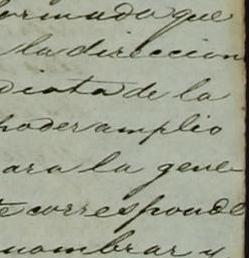 ormado que
la direccion
diata de la
poder amplio
ara la gene-
te corresponde
nombrar y